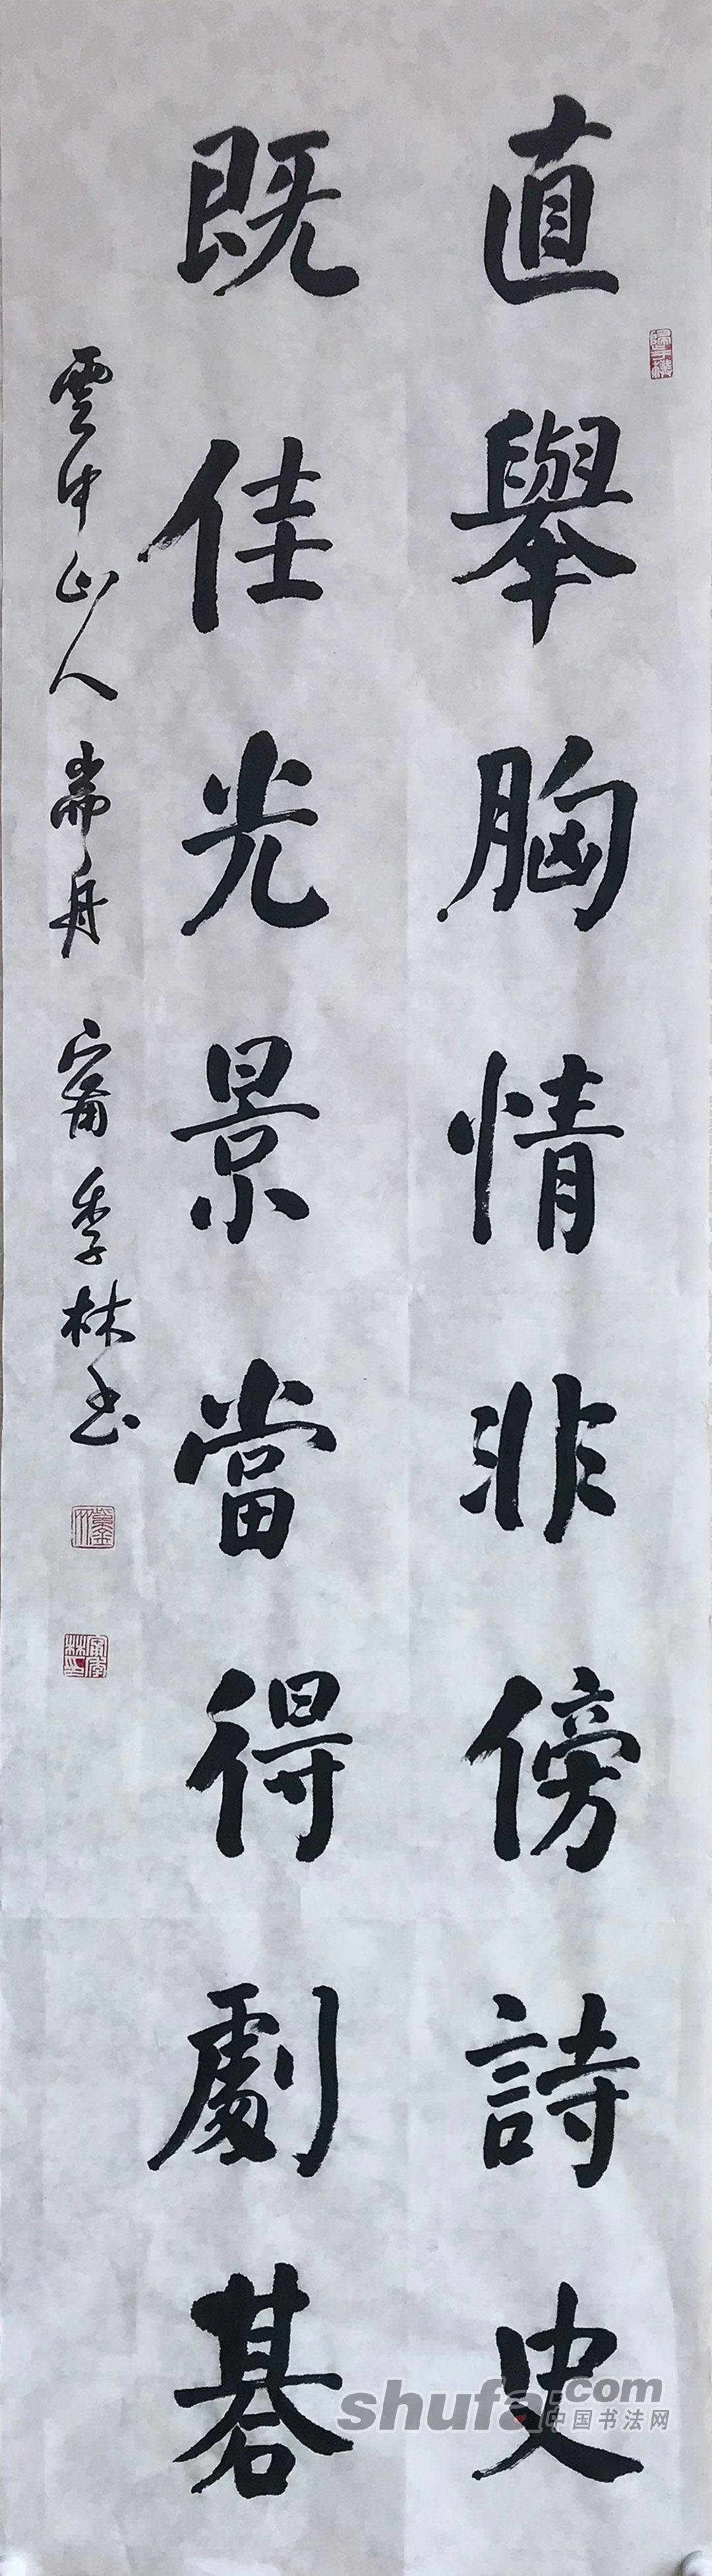 直舉胸情非傍詩史
既佳光景當得劇碁
雲中山人 耑舟 甯季林書
shufa.com
中国书法网